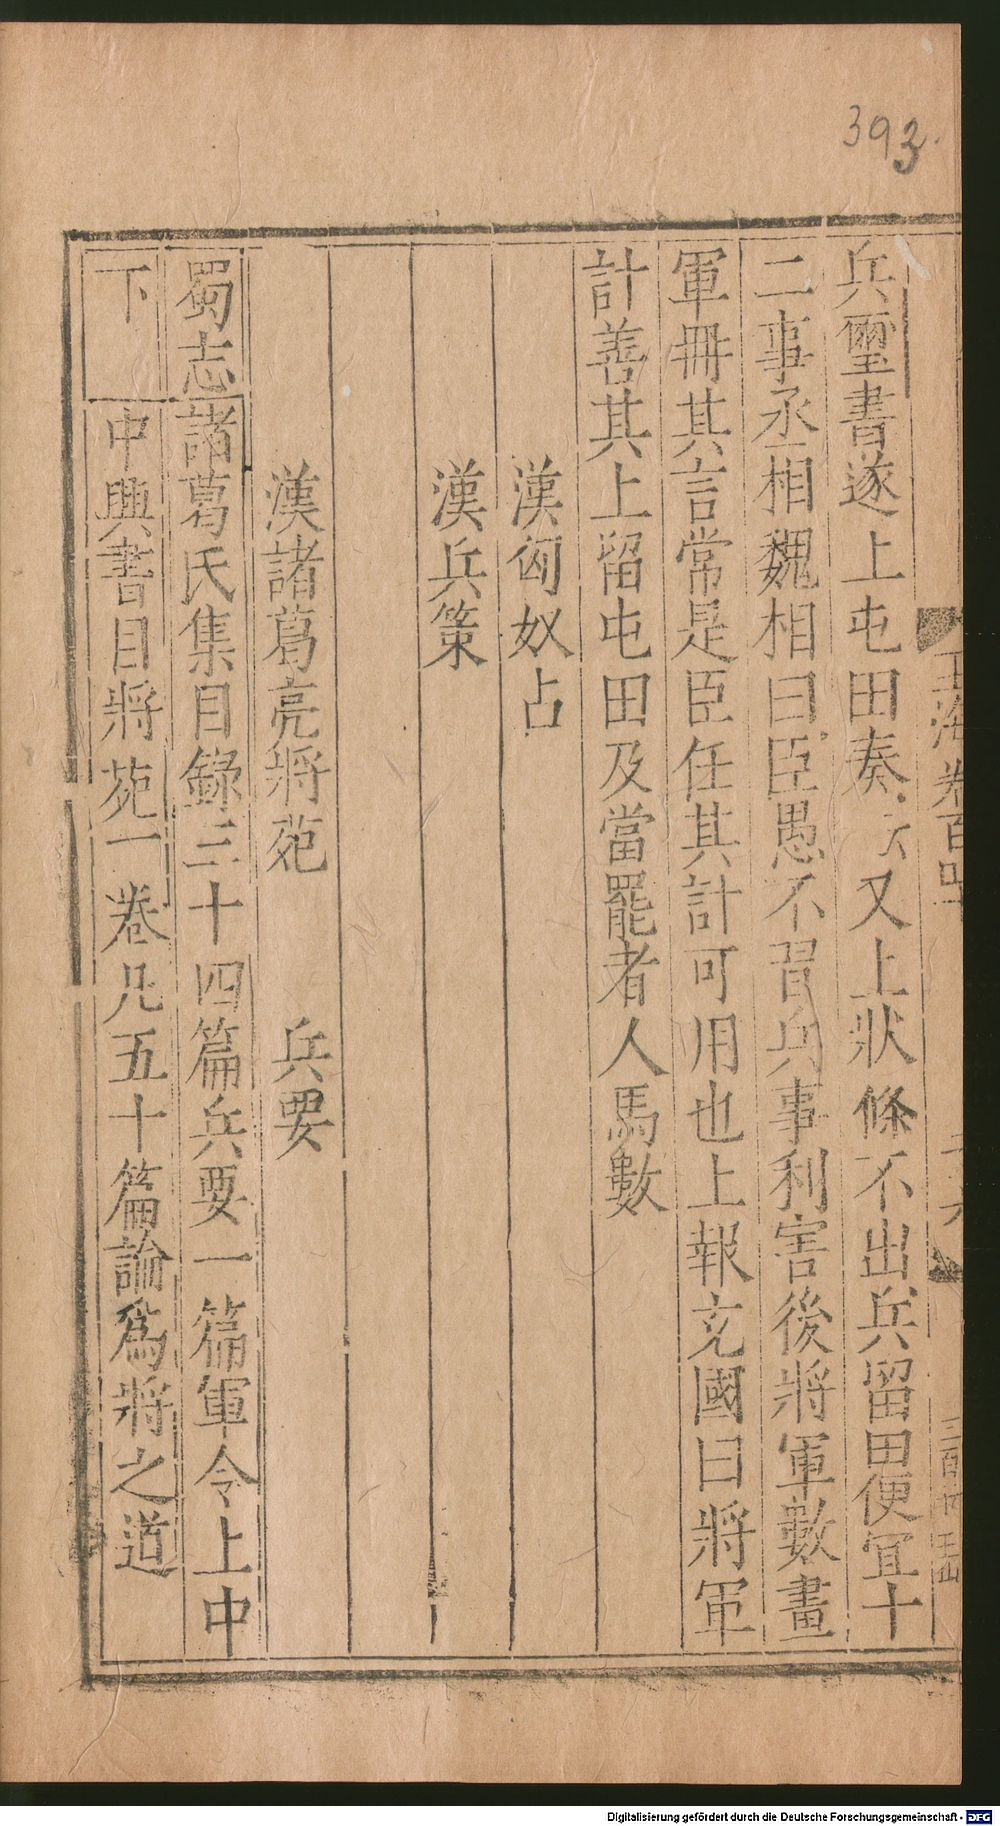 393
兵璽書遂上屯田奏又上狀條不出兵留田便宜十
二事丞相魏相曰臣愚不習兵事利害後將軍數畫
軍冊其言常是臣任其計可用也上報充國曰將軍
計善其上留屯田及當罷者人馬數
漢匈奴占
漢兵策
漢諸葛亮將苑 兵要
蜀志諸葛氏集目錄二十四篇兵要一篇軍令上中
下 中興書目將苑一卷凡五十篇論爲將之道
Digitalisierung gefördert durch die Deutsche Forschungsgemeinschaft - DFG